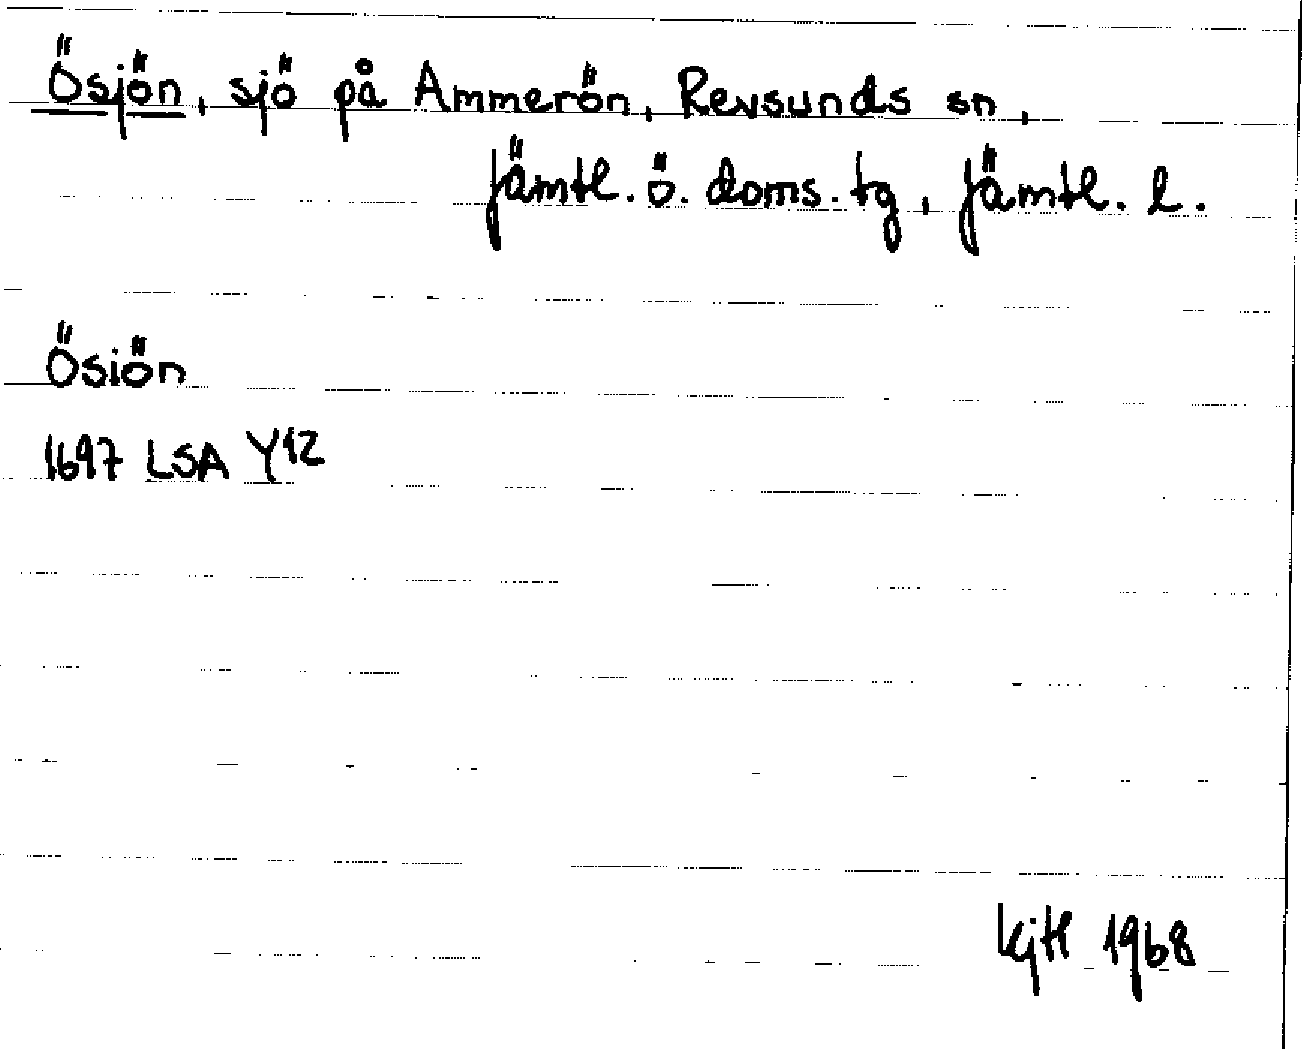 Ösjön, sjö på Ammerön, Revsunds sn,
Jämtl. ö. doms. tg, Jämtl. l.
Ösiön
1697 LSA Y12
1968